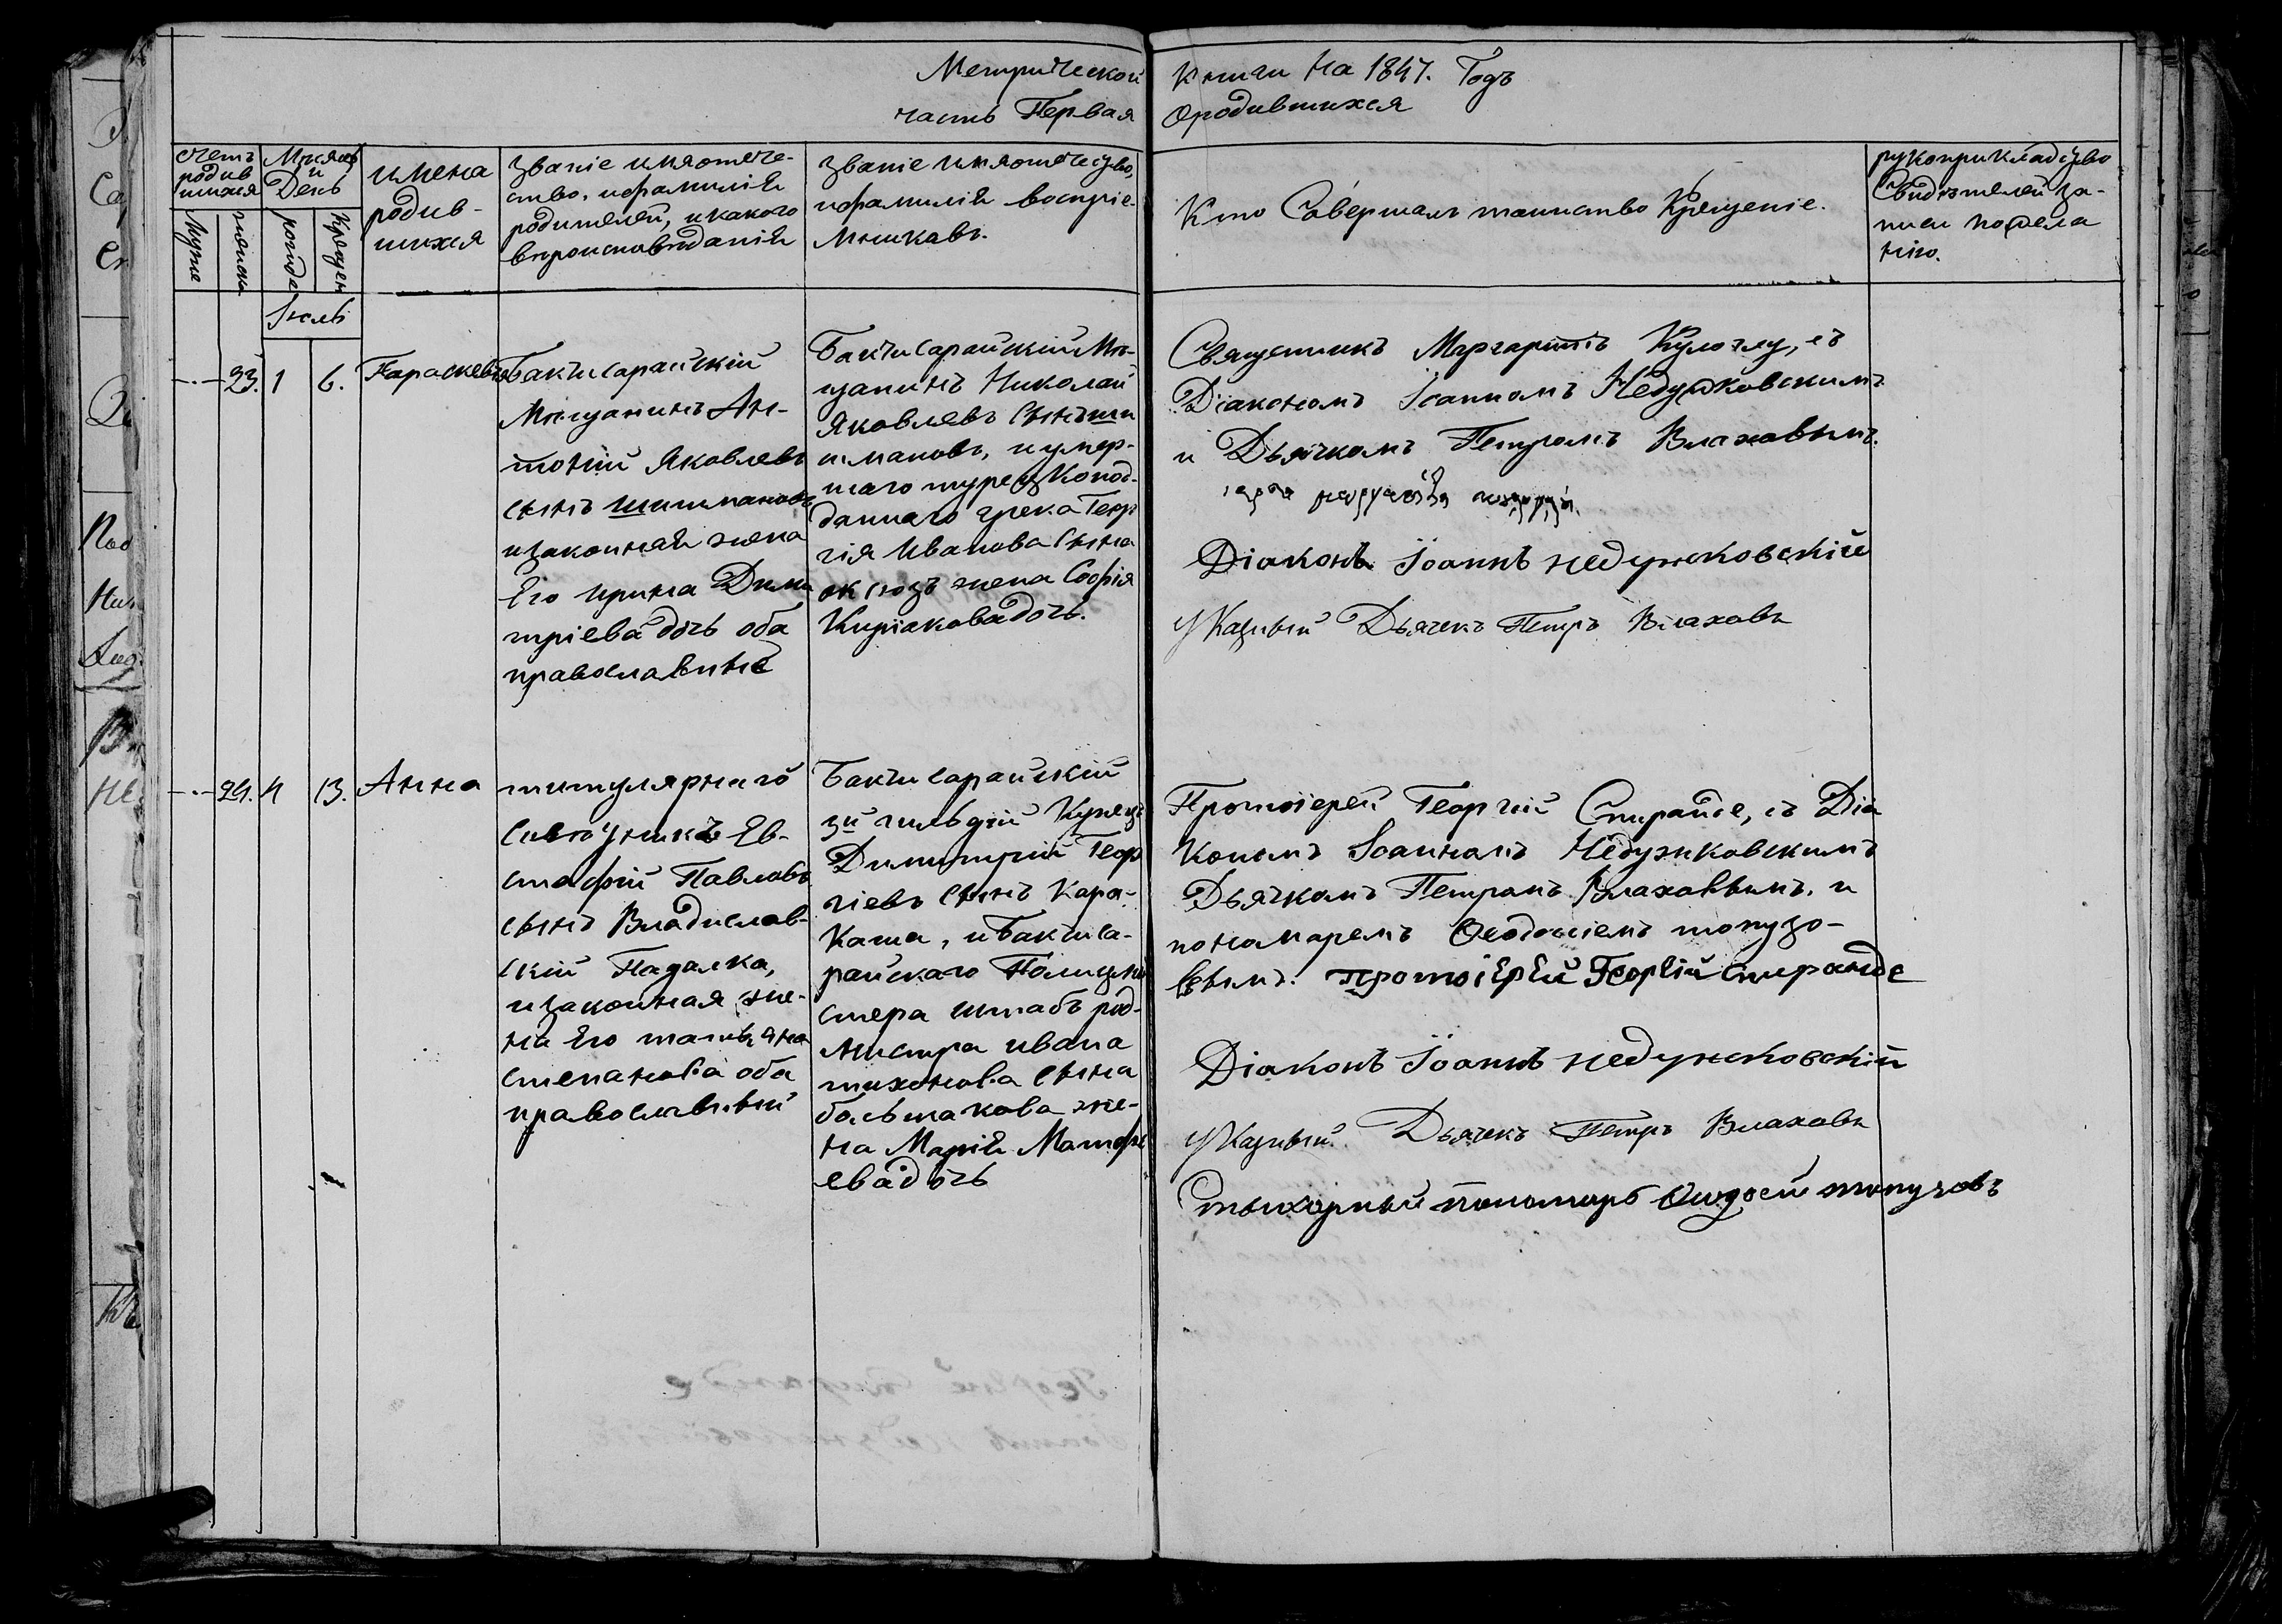 Метрической книги на 1847. Годъ
часть Первая Ородившихся
счетъ родив шихся
Мужс женска
Мѣсяцъ и День
рожде Крещен
имена
родив-
шихся
званіе имяотече-
ство, ифамилія
родителей, икакого
вѣроисповѣданія
званіе имяотечество,
ифамилія воспріе-
мниковъ.
Кто Совершалъ таинство Крещеніе.
рукоприкладство
Свидѣтелей за-
писи пожела
нію.
Іюль
23. 1 6. Параскева
Бахчисарайскій
Мѣщанинъ Ан-
тоній Яковлевъ
сынъ шишмановъ
изаконная жена
Его ирина Дими
тріева дочь оба
православные
Бахчисарайскій Мѣ-
щанинъ Николай
Яковлевъ Сынъ ши
шмановъ, иумер-
шаго турецкопод-
даннаго грека Геор
гія Иванова Сына
жена Софія
Киріакова дочь.
Священникъ Маргаритъ Кулоглу, съ
Діакономъ Іоанномъ Недужковскимъ
и Дьячкомъ Петромъ Влаховымъ.
Діаконъ Іоаннъ недужковскій
Указный Дьячекъ Петръ Влаховъ
24. 4 13. Анна
титулярнаго
Совѣтникъ Ев-
стафій Павловъ
сынъ Владислав-
скій Падалка,
изаконная же-
на Его татьяна
степанова оба
православный
Бахчисарайскій
3й гильдіи Купецъ
Димитрій Геор
гіевъ Сынъ Кара-
Каша, иБахчиса-
райскаго Полицме
стера штабъ рот-
мистра ивана
тихонова Сына
большакова же-
на Марія Матфѣ
ева дочь
Протоіерей Георгій Спиранде, съ Діа
кономъ Іоанномъ Недужковскимъ
Дьячкомъ Петромъ Влаховымъ. и
пономаремъ Ѳеодосіемъ топузо-
вымъ. протоіерей Георгій спиранде
Діаконъ Іоаннъ недужковскій
Указный Дьячекъ Петръ Влаховъ
Стихарный пономарь Ѳеодосій топузовъ